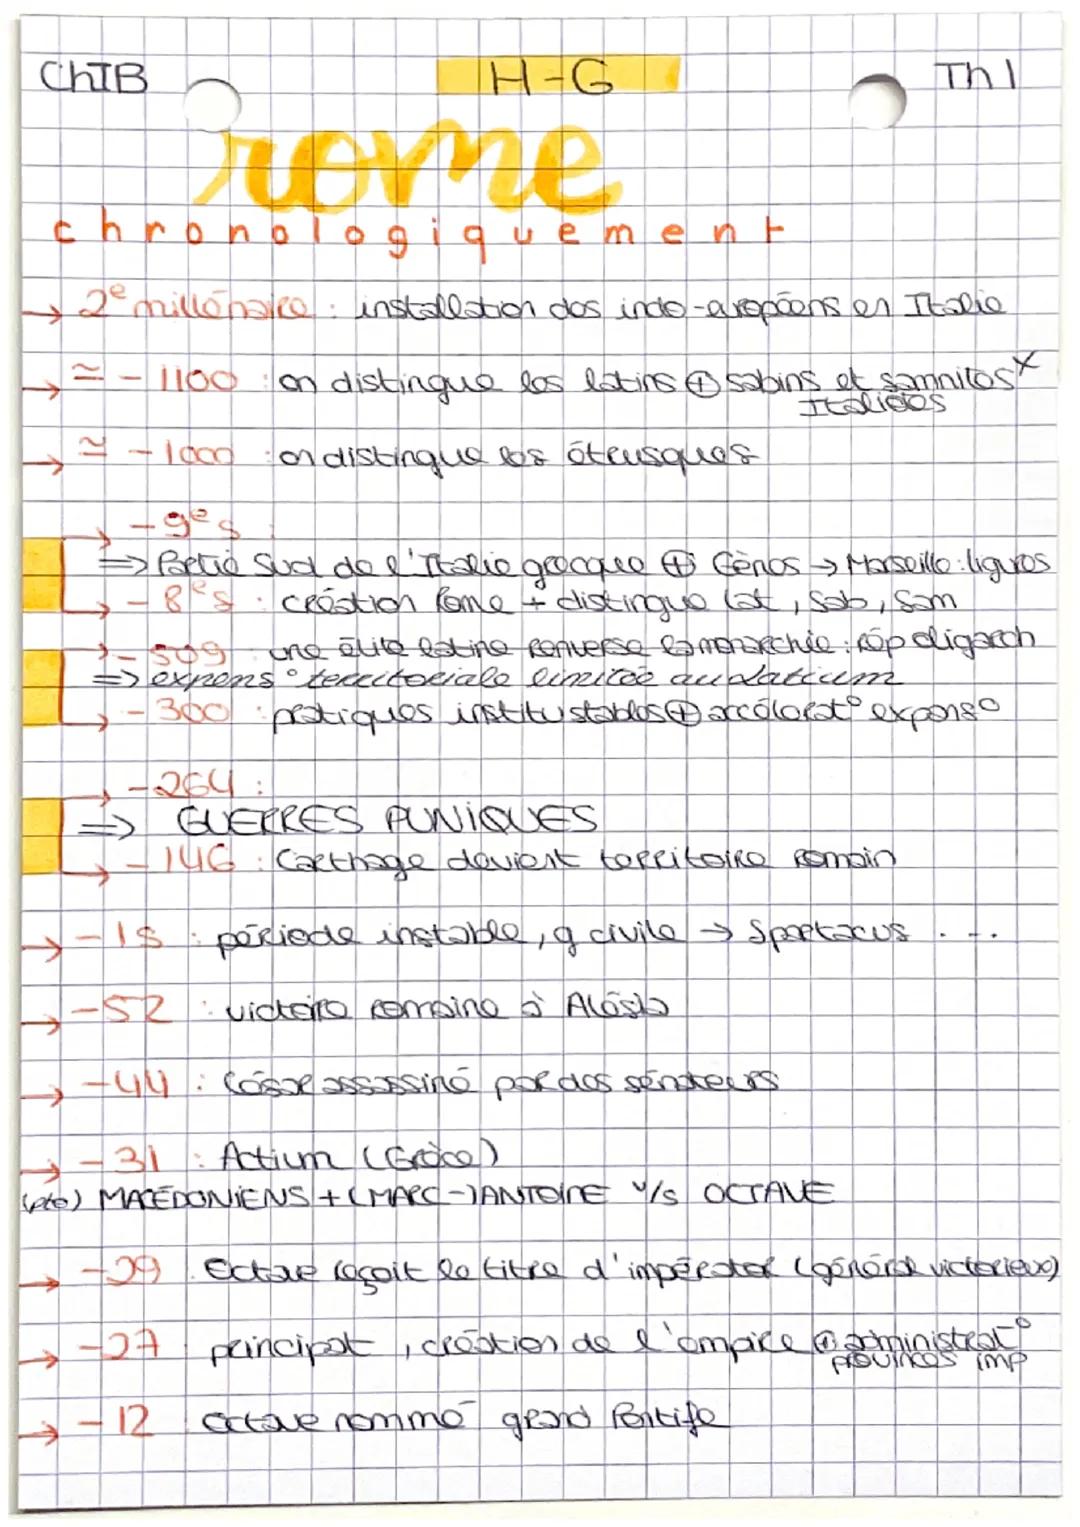 ChIB H-G Th 1
rome
chronologiquement
→ 2e millénaire : installation des indo-européens en Italie
→ ≃ - 1100 : on distingue les latins ⊕ sabins et samnites x
Italiques
→ ≃ - 1000 : on distingue les étrusques
→ - 9e s :
⇒ Partie Sud de l'Italie grecque ⊕ Gênes → Marseille : ligures
→ - 8e s : création Rome + distingue lat, Sab, Sam
→ - 509 une élite latine renverse la monarchie : rép oligarch
⇒ expans° territoriale limitée au Latium
→ - 300 : pratiques institu stables ⊕ accélérat° expans°
→ - 264 :
⇒ GUERRES PUNIQUES
→ - 146 : Carthage devient territoire romain
→ - 1 s : période instable, g civile → Spartacus . - .
→ - 52 : victoire romaine à Alésia
→ - 44 : César assassiné par des sénateurs
→ - 31 : Actium (Grèce)
MACÉDONIENS + (MARC-)ANTOINE v/s OCTAVE
→ - 29 Octave reçoit le titre d'impérator (général victorieux)
→ - 27 principat, création de l'empire ⊕ administrat°
provinces imp
→ - 12 octave nommé grand Pontife